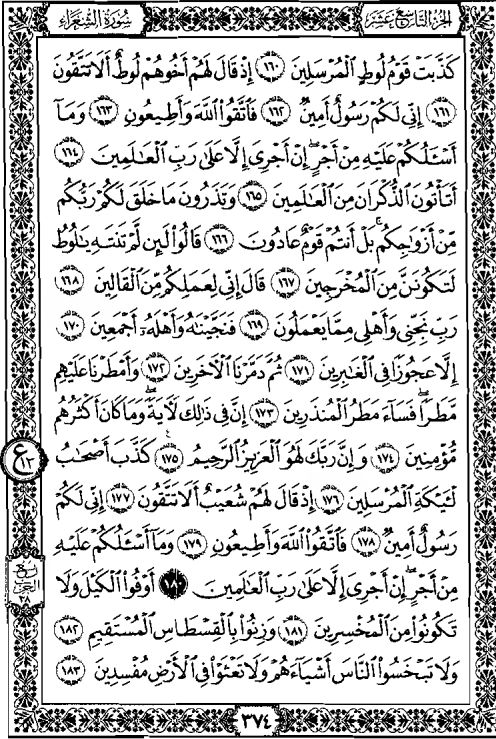 الجزء التاسع عشر
سورة الشعراء
كَذَّبَتْ قَوْمُ لُوطٍ الْمُرْسَلِينَ ١٦٠ إِذْ قَالَ لَهُمْ أَخُوهُمْ لُوطٌ أَلَا تَتَّقُونَ
١٦١ إِنِّي لَكُمْ رَسُولٌ أَمِينٌ ١٦٢ فَاتَّقُوا اللَّهَ وَأَطِيعُونِ ١٦٣ وَمَا
أَسْئَلُكُمْ عَلَيْهِ مِنْ أَجْرٍ إِنْ أَجْرِيَ إِلَّا عَلَى رَبِّ الْعَالَمِينَ ١٦٤
أَتَأْتُونَ الذُّكْرَانَ مِنَ الْعَالَمِينَ ١٦٥ وَتَذَرُونَ مَا خَلَقَ لَكُمْ رَبُّكُم
مِّنْ أَزْوَاجِكُم بَلْ أَنتُمْ قَوْمٌ عَادُونَ ١٦٦ قَالُوا لَئِن لَّمْ تَنتَهِ يَٰلُوطُ
لَتَكُونَنَّ مِنَ الْمُخْرَجِينَ ١٦٧ قَالَ إِنِّي لِعَمَلِكُم مِّنَ الْقَالِينَ ١٦٨
رَبِّ نَجِّنِي وَأَهْلِي مِمَّا يَعْمَلُونَ ١٦٩ فَنَجَّيْنَٰهُ وَأَهْلَهُۥ أَجْمَعِينَ ١٧٠
إِلَّا عَجُوزًا فِي الْغَٰبِرِينَ ١٧١ ثُمَّ دَمَّرْنَا الْآخَرِينَ ١٧٢ وَأَمْطَرْنَا عَلَيْهِم
مَّطَرًا فَسَاءَ مَطَرُ الْمُنذَرِينَ ١٧٣ إِنَّ فِي ذَٰلِكَ لَآيَةً وَمَا كَانَ أَكْثَرُهُم
مُّؤْمِنِينَ ١٧٤ وَإِنَّ رَبَّكَ لَهُوَ الْعَزِيزُ الرَّحِيمُ ١٧٥ كَذَّبَ أَصْحَٰبُ
لْـَٔيْكَةِ الْمُرْسَلِينَ ١٧٦ إِذْ قَالَ لَهُمْ شُعَيْبٌ أَلَا تَتَّقُونَ ١٧٧ إِنِّي لَكُمْ
رَسُولٌ أَمِينٌ ١٧٨ فَاتَّقُوا اللَّهَ وَأَطِيعُونِ ١٧٩ وَمَا أَسْئَلُكُمْ عَلَيْهِ
مِنْ أَجْرٍ إِنْ أَجْرِيَ إِلَّا عَلَى رَبِّ الْعَالَمِينَ ١٨٠ أَوْفُوا الْكَيْلَ وَلَا
تَكُونُوا مِنَ الْمُخْسِرِينَ ١٨١ وَزِنُوا بِالْقِسْطَاسِ الْمُسْتَقِيمِ ١٨٢
وَلَا تَبْخَسُوا النَّاسَ أَشْيَاءَهُمْ وَلَا تَعْثَوْا فِي الْأَرْضِ مُفْسِدِينَ ١٨٣
ع
١٣
ربع
الحزب
٣٨
٣٧٤